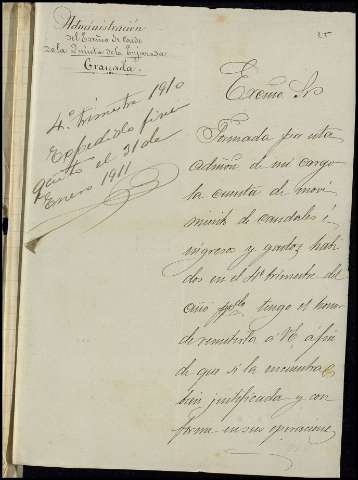 Administración
del Excmo Sr Conde
de la Quinta de la Enjarada
Granada.
25
4º trimestre 1910
Expedido
el 31 de
Enero 1911
Excmo Sr
Formada por esta
admon de mi cargo
la cuenta de movi
miento de caudales é
ingresos y gastos habi
dos en el 4º trimestre del
año ppdo tengo el honor
de remitirla á VE á fin
de que si la encuentra
bien justificada y con
forme en sus operaciones